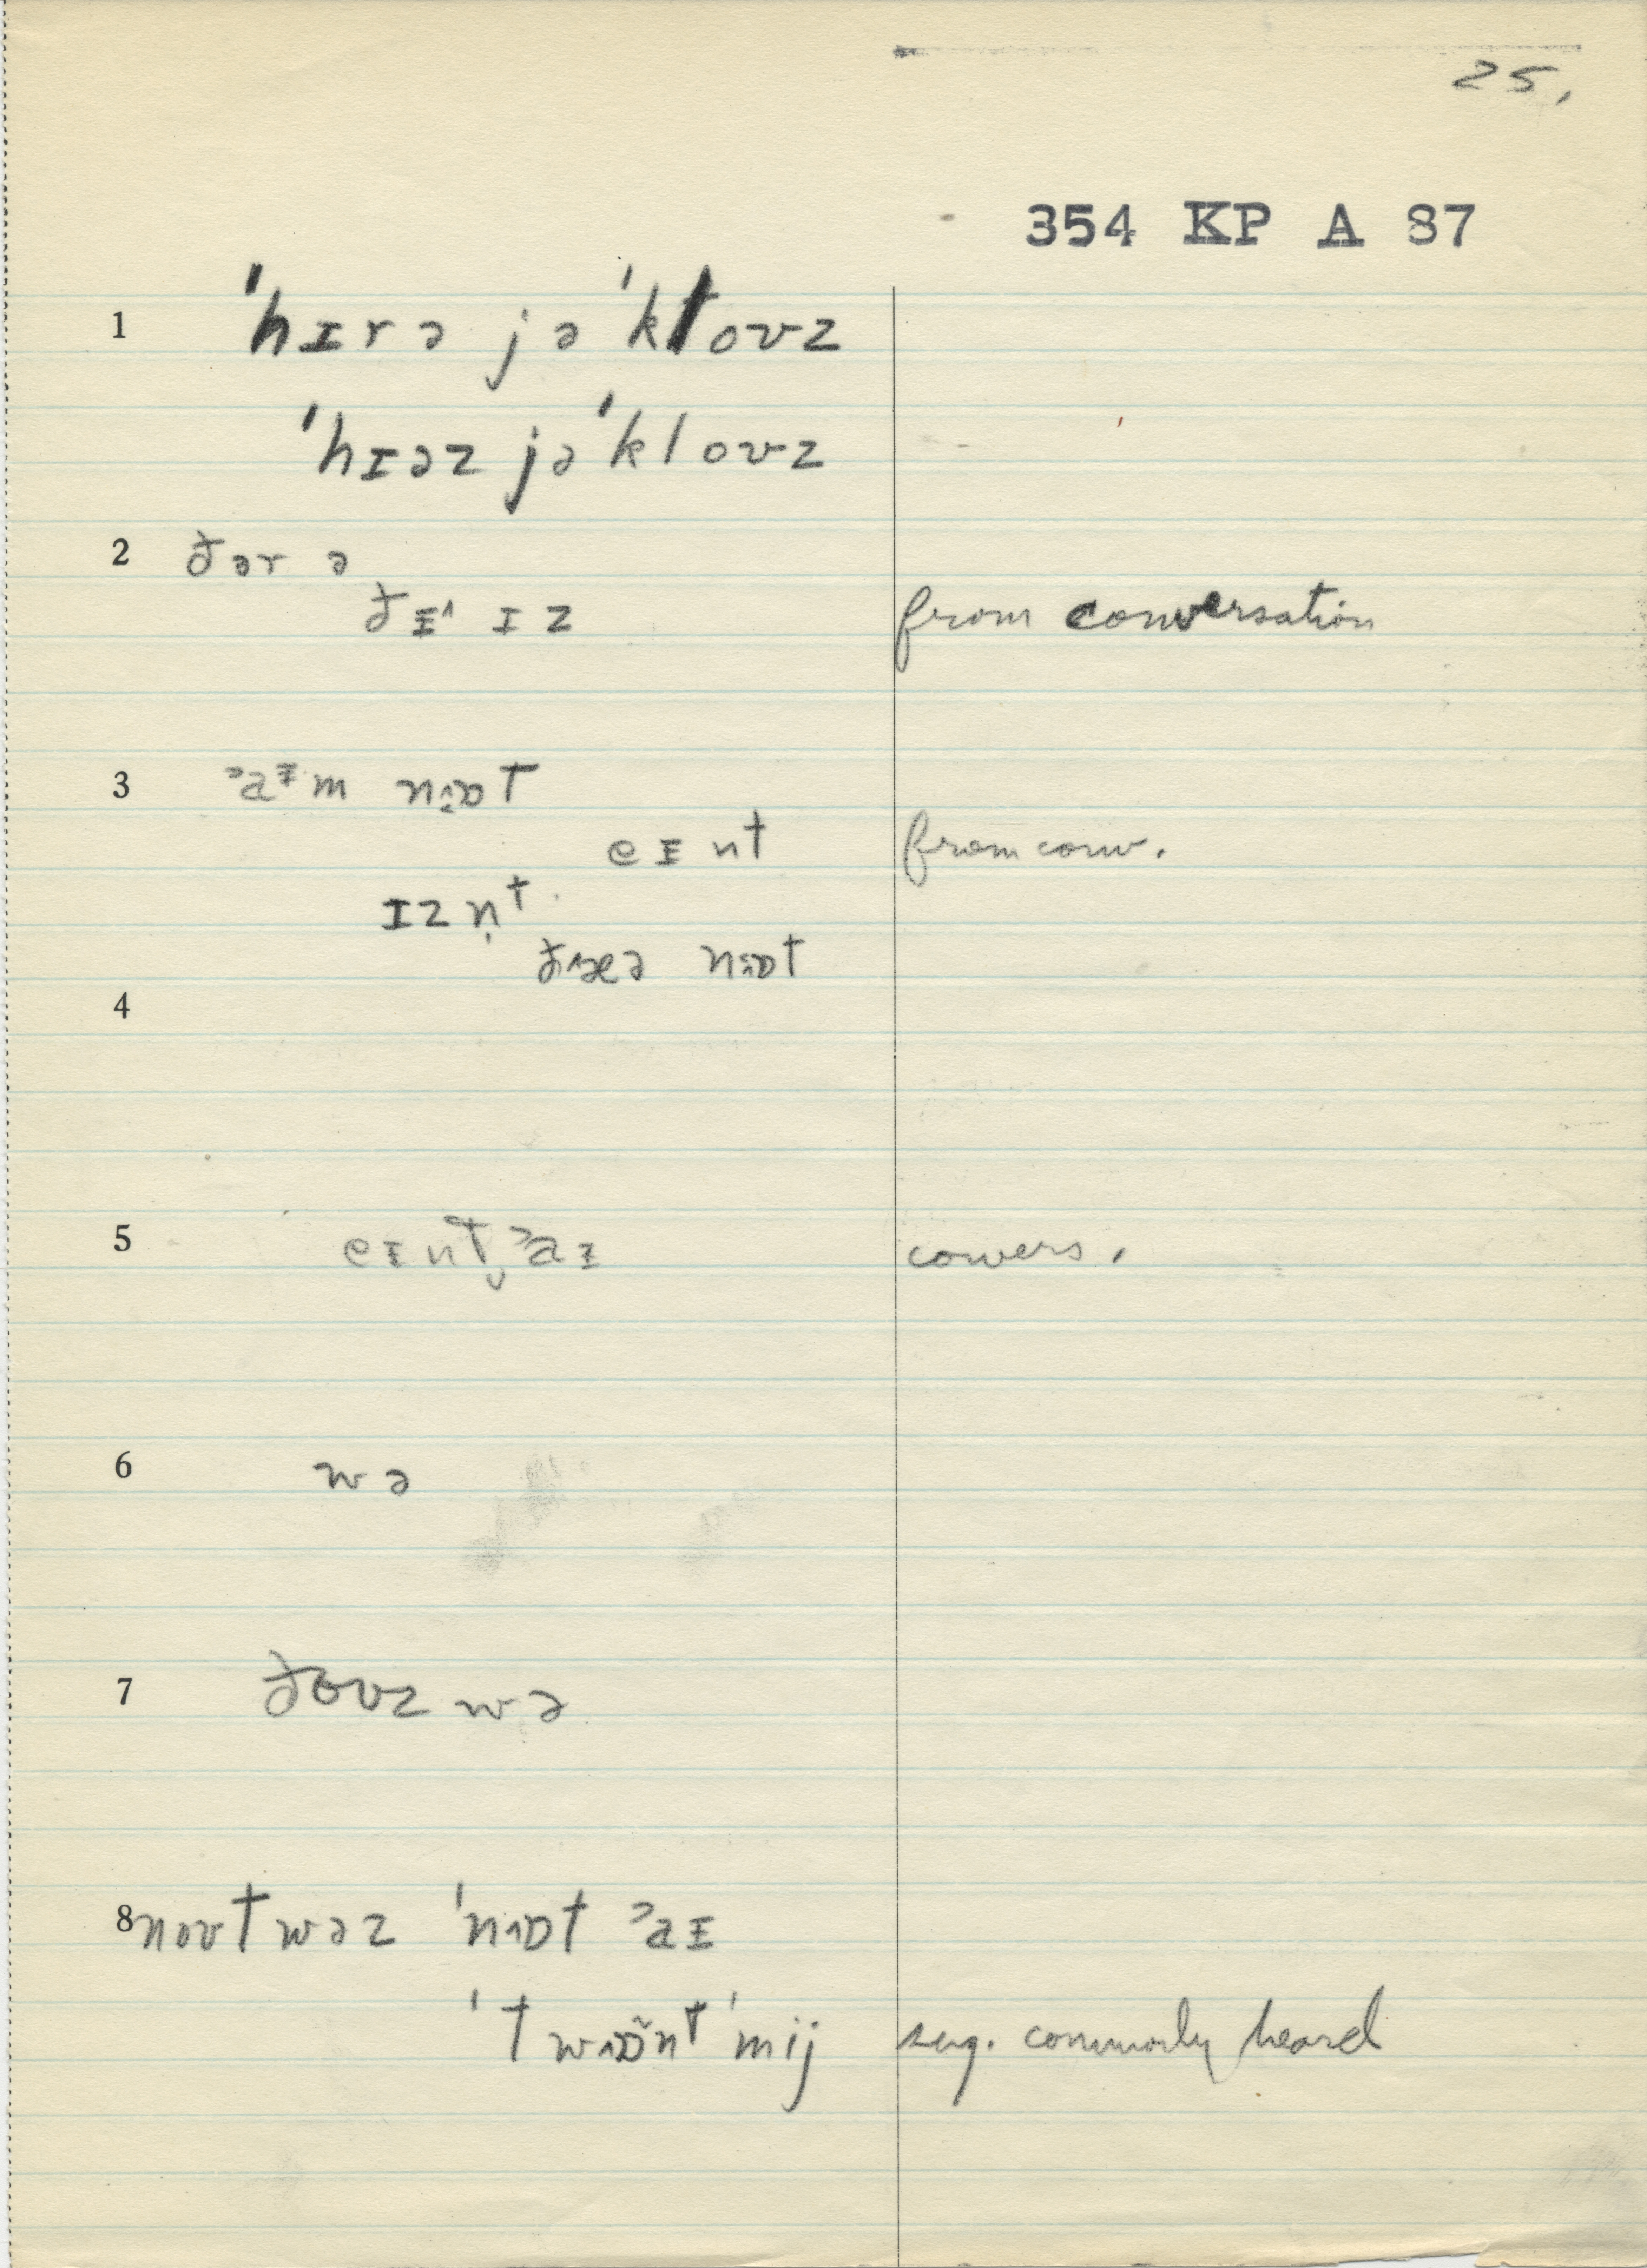 25.
354 KP A 87
1 ˈhɪrə jəˈkloʊz
ˈhɪəz jəˈkloʊz
2 ðər ə
ðɪ˄ ɪz from conversation
3 ˀaɪm nɒt
eɪnt from conv.
ɪzn̩t
ðæə nɒt
4
5 eɪnt̬ ˀaɪ convers.
6 wə
7 ðoʊz wə
8 noʊt wəz ˈnɒt ˀaɪ
ˈtwɒ̃nt ˈmij sug. commonly heard